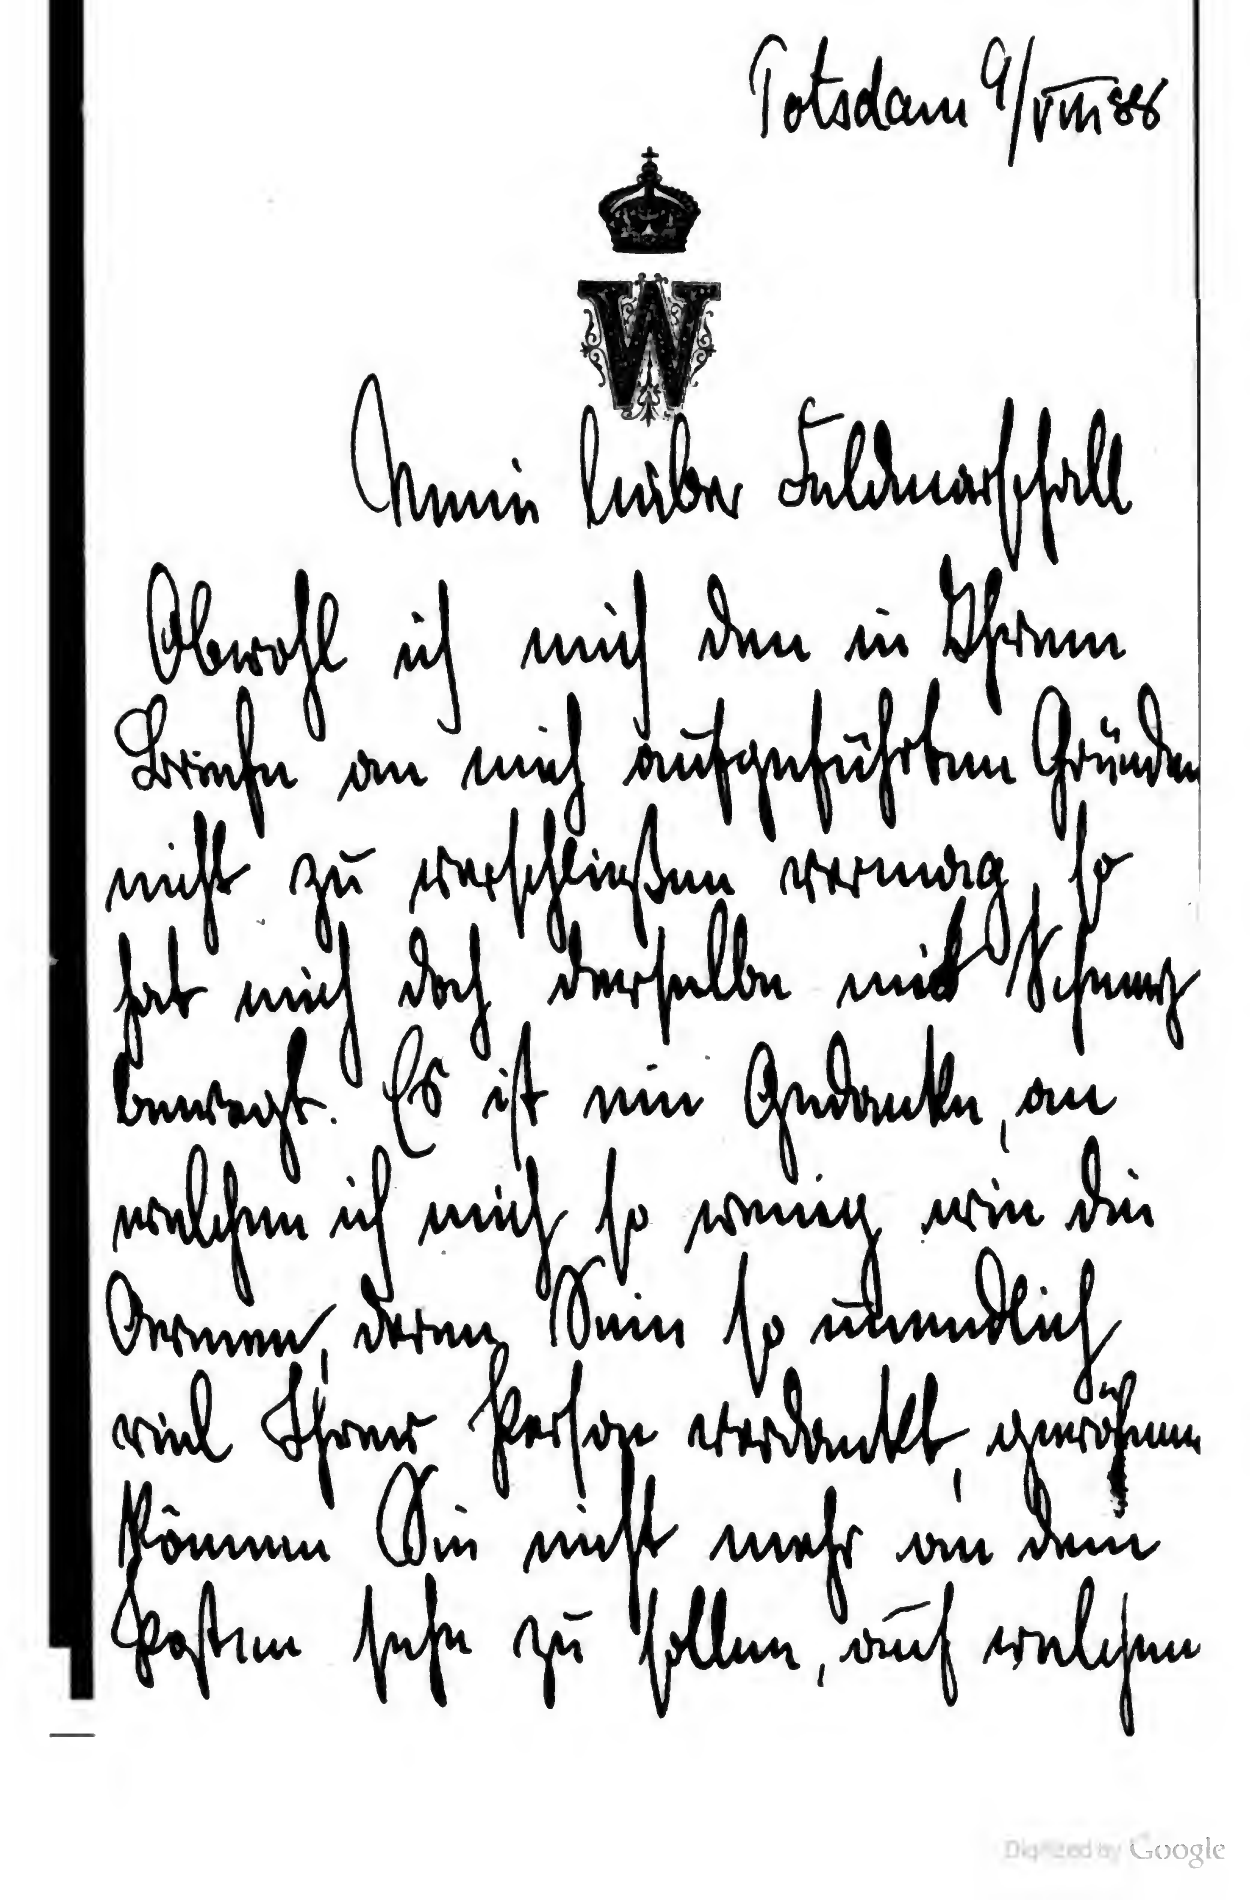 Potsdam 9/VIII 88
W
Mein lieber Feldmarschall
Obwohl ich mich den in Ihrem
Briefe an mich aufgeführten Gründen
nicht zu verschließen vermag, so
hat mich doch derselbe mit Schmerz
bewegt. Es ist ein Gedanke, an
welchen ich mich so wenig wie die
Armee, deren Sein so unendlich
viel Ihrer Person verdankt, gewöhnen
können Sie nicht mehr an dem
Posten sehn zu sollen, auf welchem
Digitized by Google